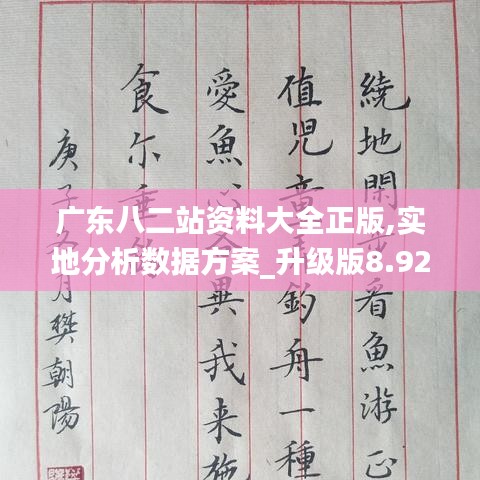 繞地閒步看魚游正
值兒童弄釣舟一種
愛魚心各異我來施
食尔垂鉤
庚子月樊朝陽
广东八二站资料大全正版,实
地分析数据方案_升级版8.92